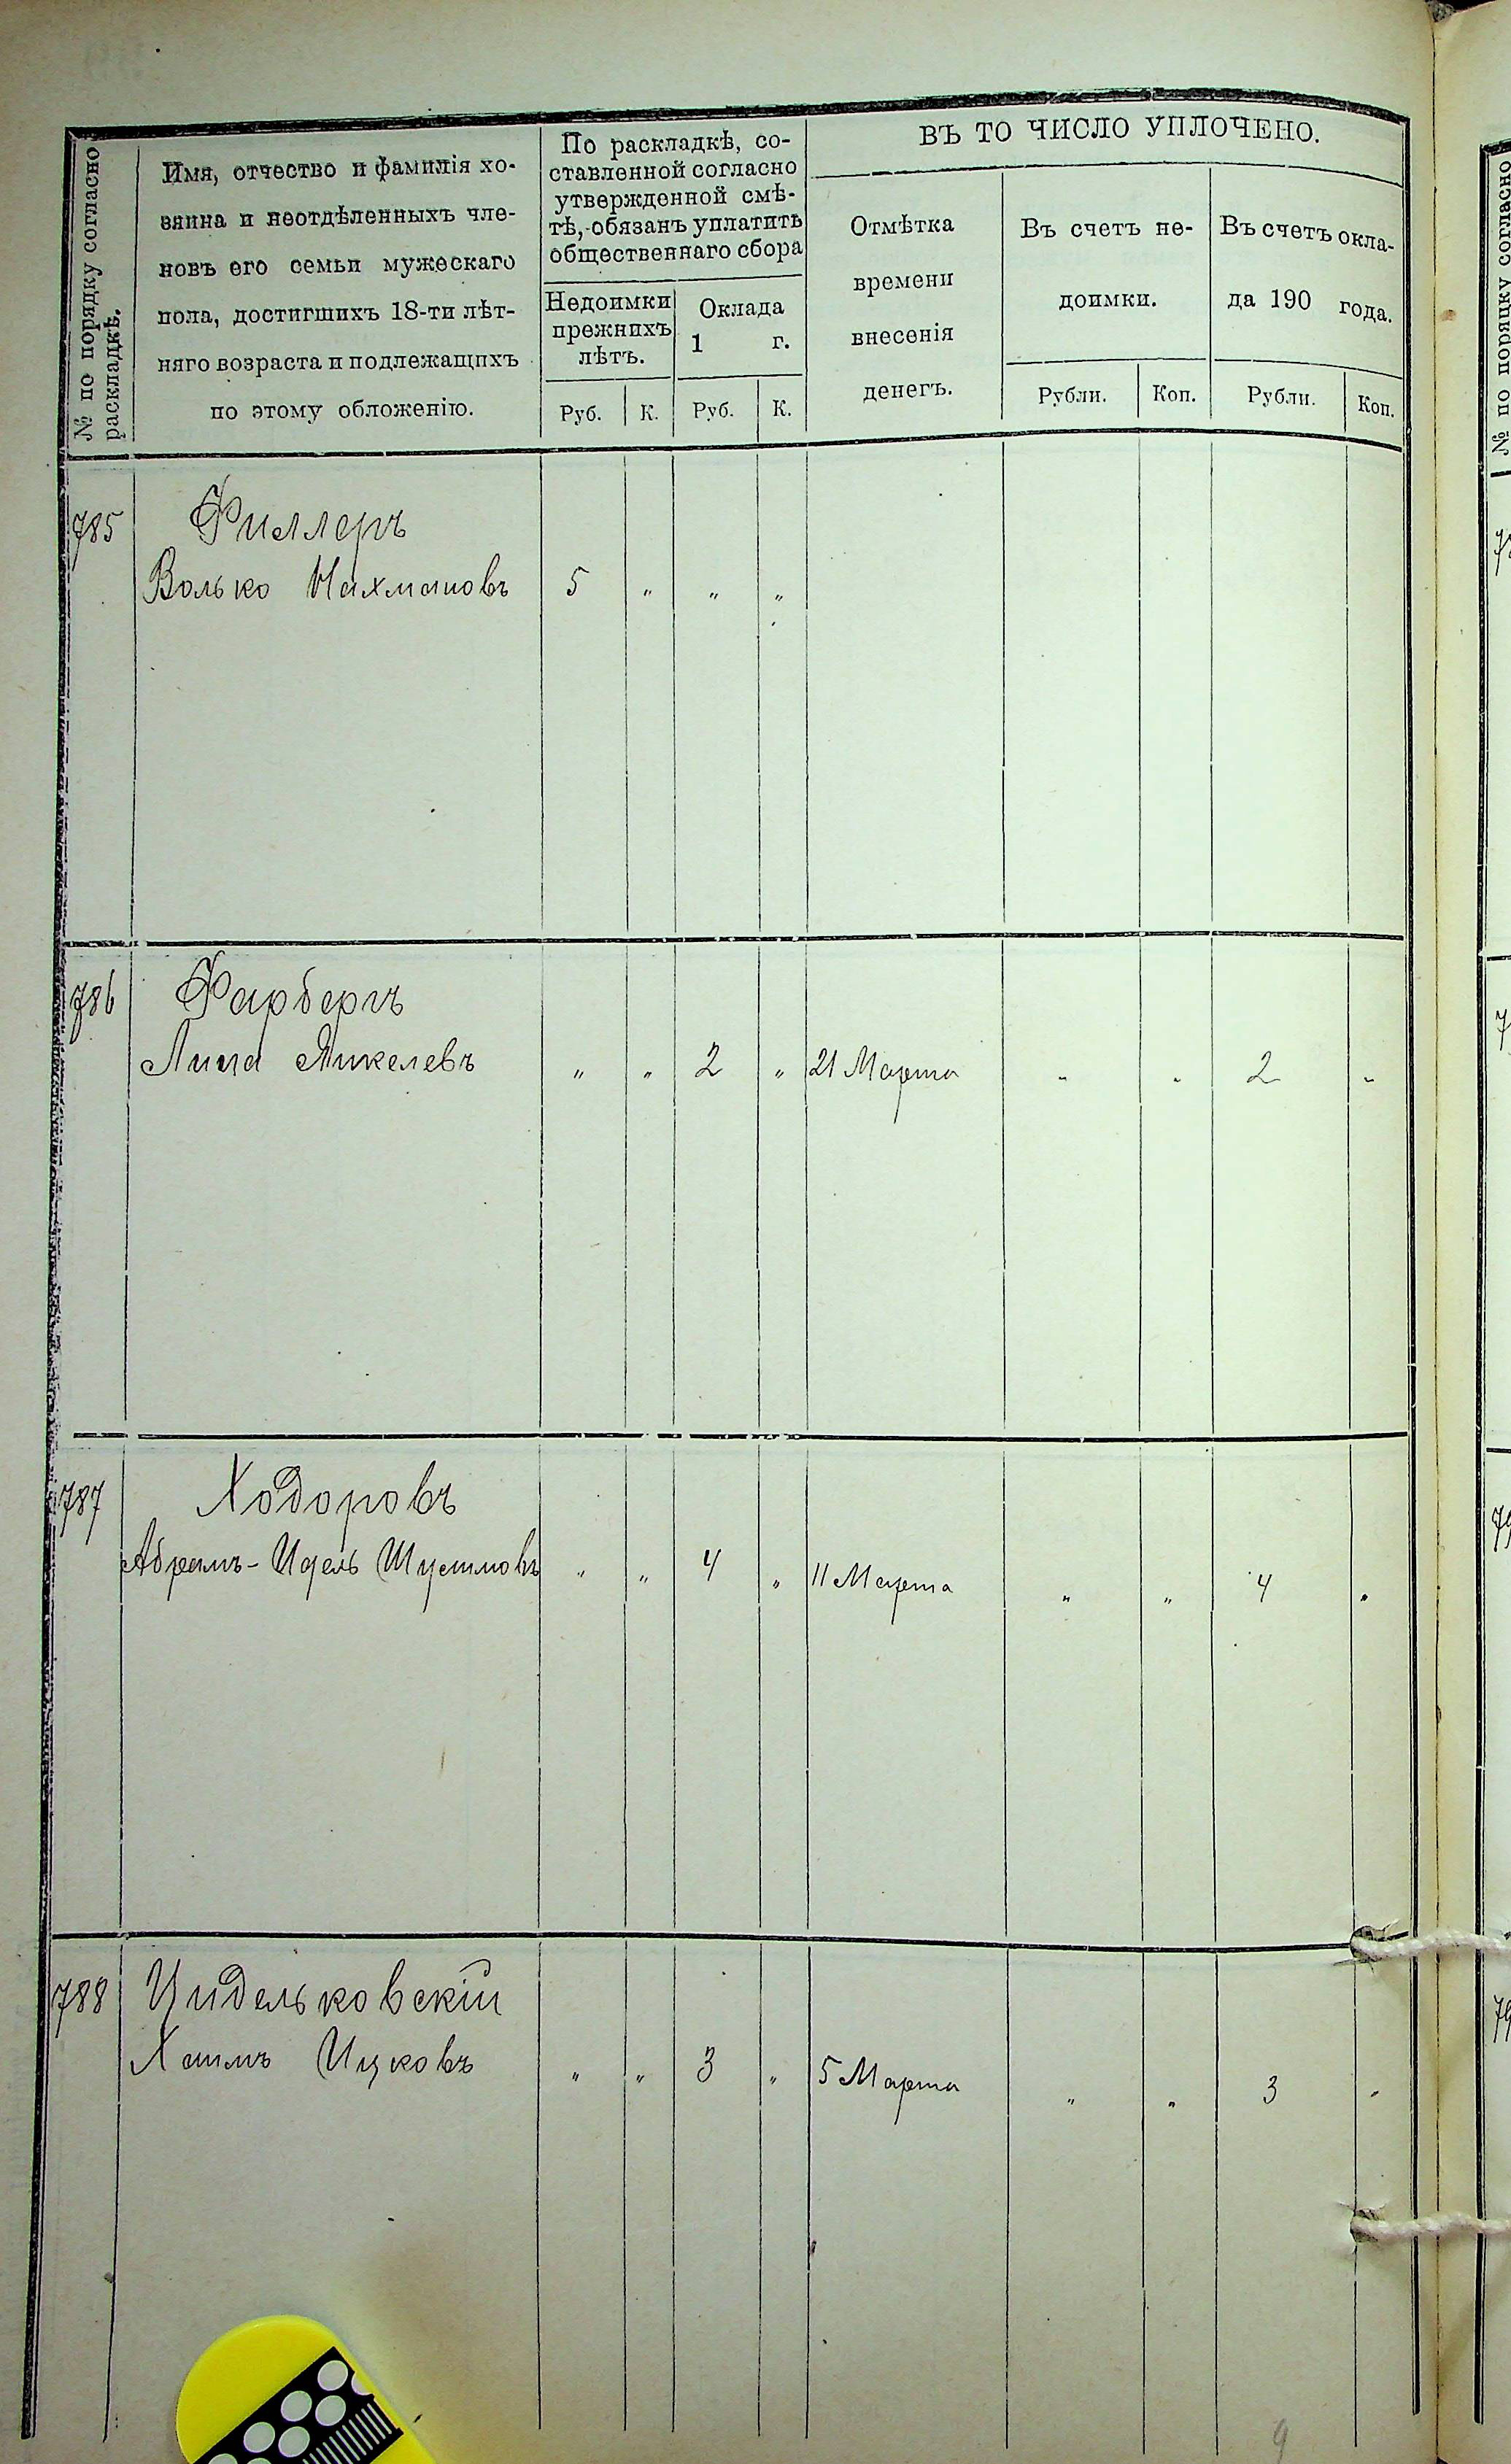 № по порядку согласно раскладкѣ.
Имя, отчество и фамилія хо-
зяина и неотдѣленныхъ чле-
новъ его семьи мужескаго
пола, достигшихъ 18-ти лѣт-
няго возраста и подлежащихъ
по этому обложенію.
По раскладкѣ, со-
ставленной согласно
утвержденной смѣ-
тѣ, обязанъ уплатить
общественнаго сбора
Недоимки
прежнихъ
лѣтъ.
Оклада
1 г.
Руб. К. Руб. К.
ВЪ ТО ЧИСЛО УПЛОЧЕНО.
Отмѣтка
времени
внесенія
денегъ.
Въ счетъ не-
доимки.
Въ счетъ окла-
да 190 года.
Рубли. Коп. Рубли. Коп.
785 Филлеръ
Волько Нахмановъ 5 " " "
786 Фарбергъ
" " 2 " 21 Марта " " 2 "
787 Ходоровъ
Абрамъ- " " 4 " 11 Марта " " 4 "
788 Цидельковскій
Хаимъ Ицковъ " " 3 " 5 Марта " " 3 "
9
№ по порядку согласно